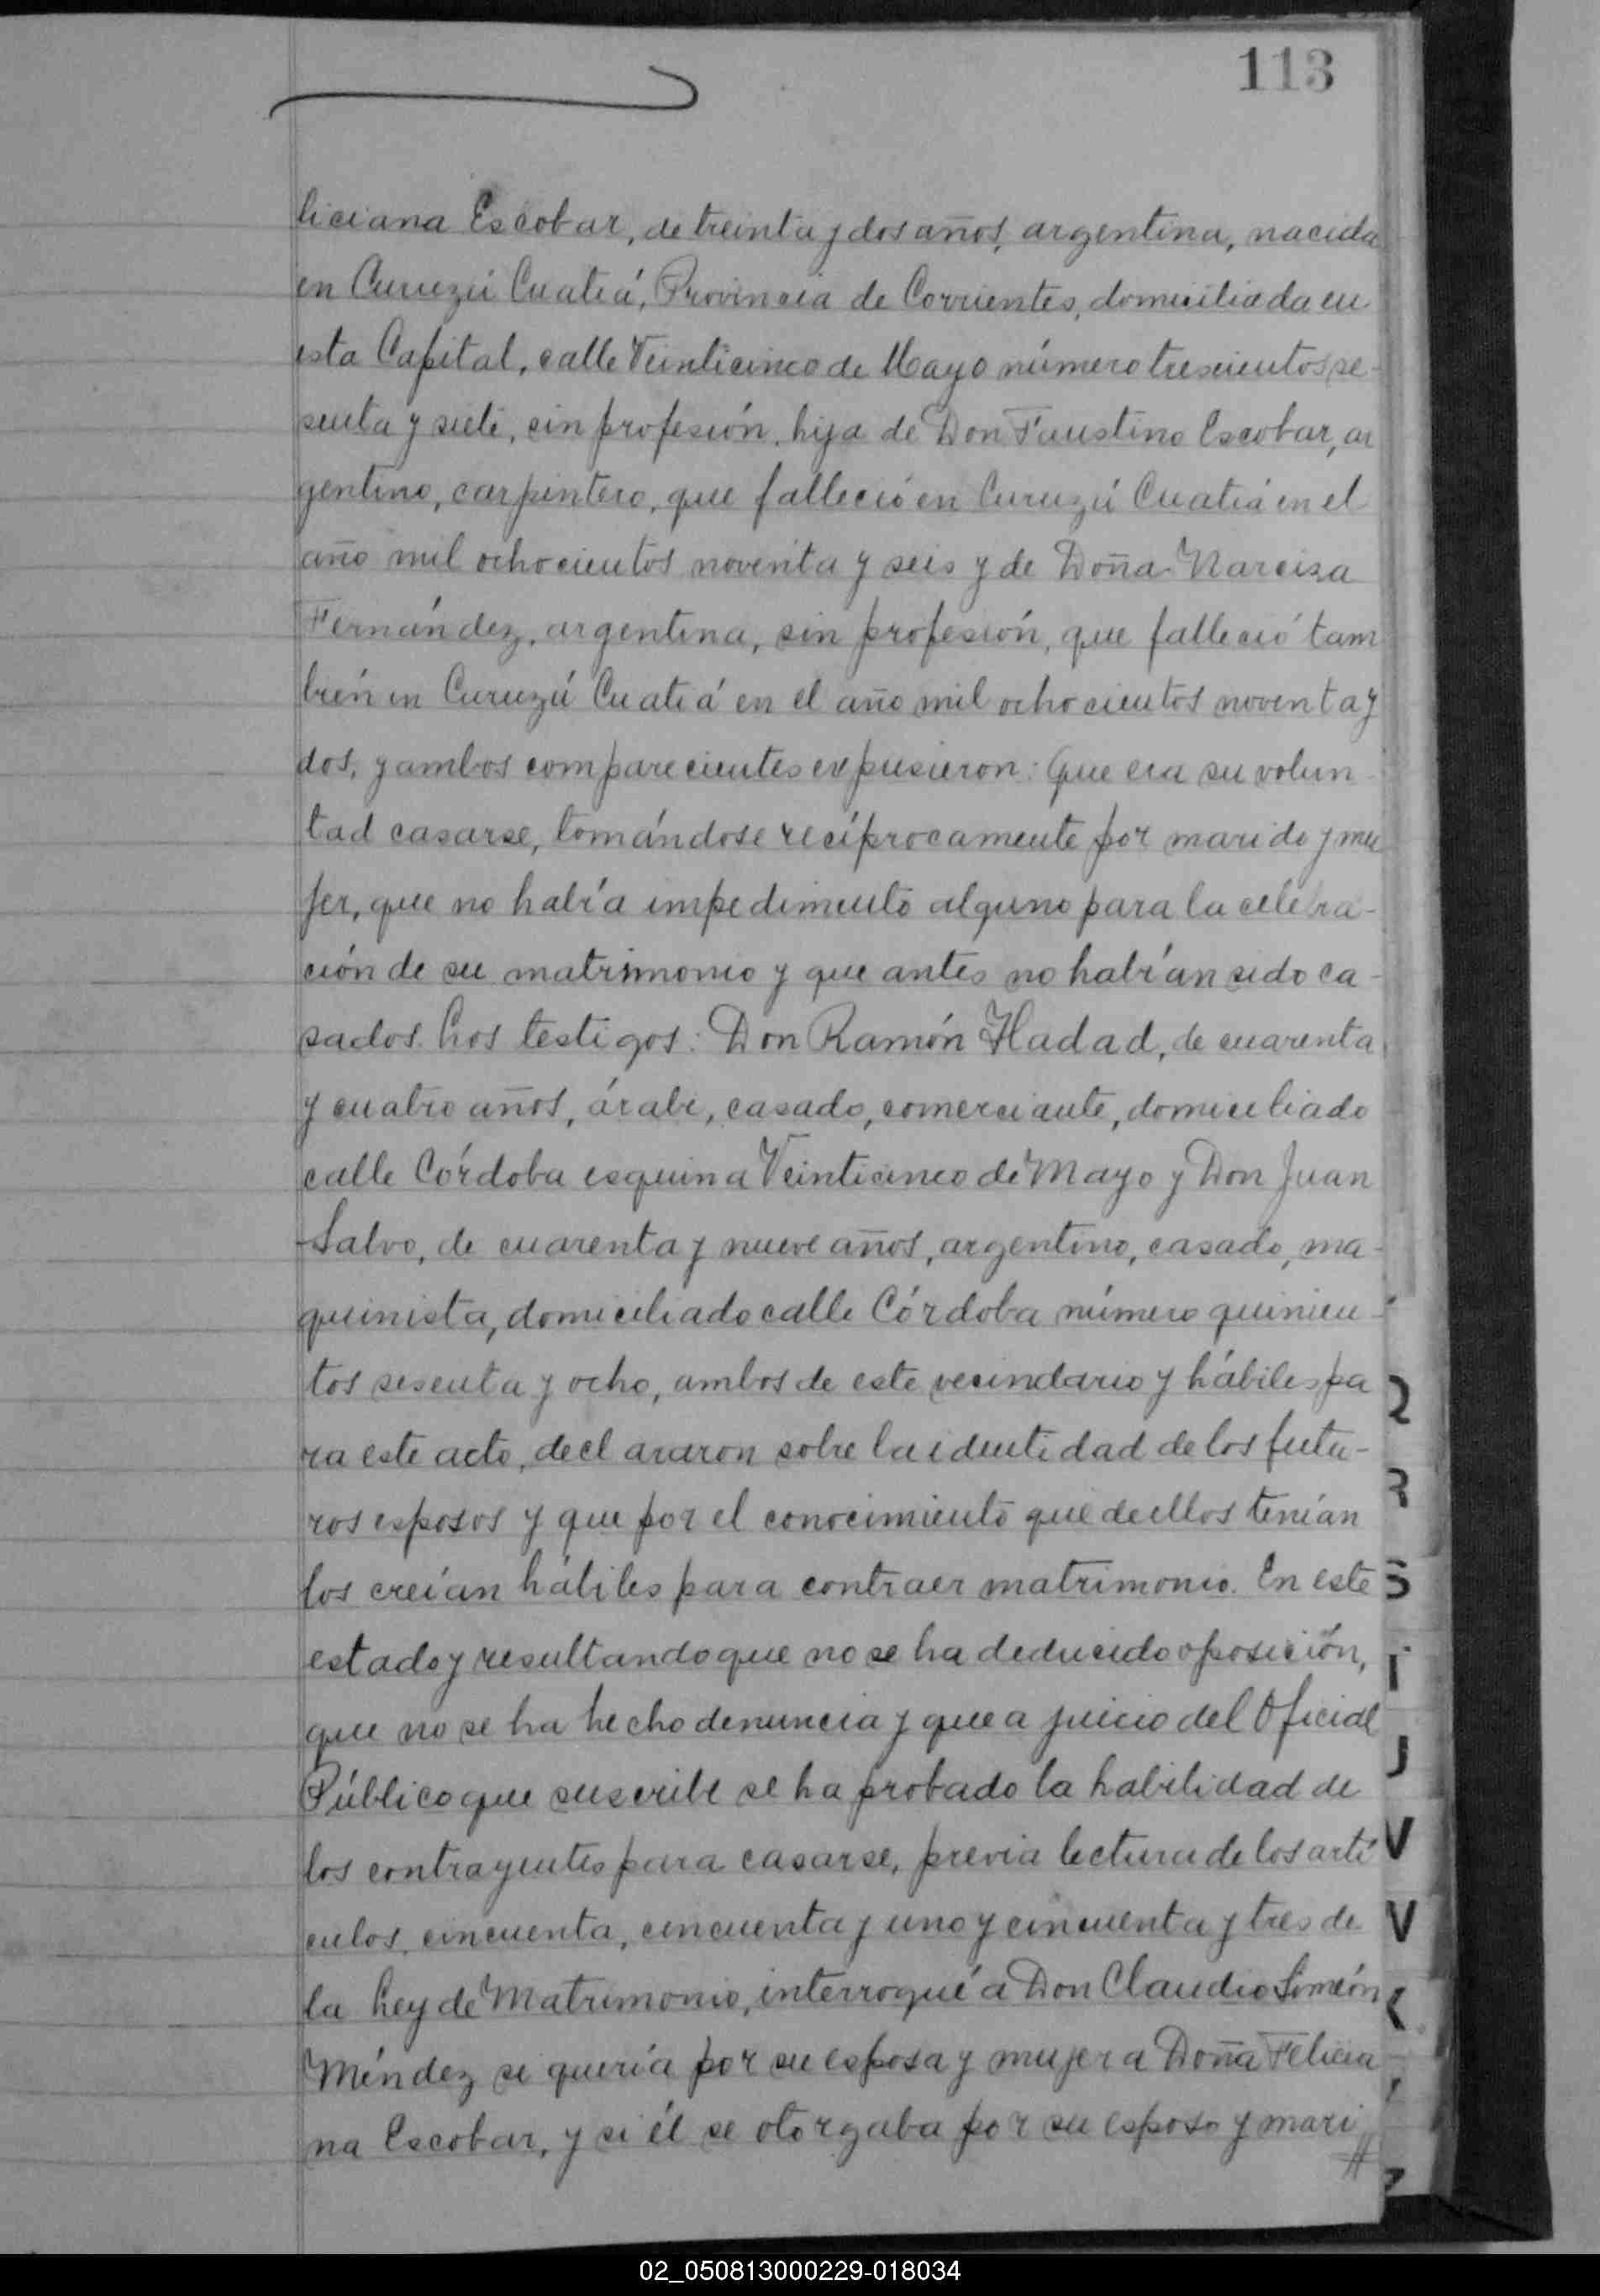 113
liciana Escobar, de treinta y dos años, argentina, nacida
en Curuzú Cuatiá, Provincia de Corrientes, domiciliada en
esta Capital, calle Veinticinco de Mayo número trescientos se-
senta y siete, sin profesión, hija de Don Faustino Escobar, ar
gentino, carpintero, que falleció en Curuzú Cuatiá en el
año mil ochocientos noventa y seis y de Doña Narcisa
Fernández, argentina, sin profesión, que falleció tam
bién en Curuzú Cuatiá en el año mil ochocientos noventa y
dos, y ambos comparecientes expusieron: Que era su volun-
tad casarse, tomándose recíprocamente por marido y mu
jer, que no había impedimento alguno para la celebra-
ción de su matrimonio y que antes no habían sido ca-
sados. Los testigos: Don Ramón Hadad, de cuarenta
y cuatro años, árabe, casado, comerciante, domiciliado
calle Córdoba esquina Veinticinco de Mayo y Don Juan
Salvo, de cuarenta y nueve años, argentino, casado, ma-
quinista, domiciliado calle Córdoba número quinien-
tos sesenta y ocho, ambos de este vecindario y hábiles pa
ra este acto, declararon sobre la identidad de los futu-
ros esposos y que por el conocimiento que de ellos tenían
los creían hábiles para contraer matrimonio. En este
estado y resultando que no se ha deducido oposición,
que no se ha hecho denuncia y que a juicio del Oficial
Público que suscribe se ha probado la habilidad de
los contrayentes para casarse, previa lectura de los artí
culos, cincuenta, cincuenta y uno y cincuenta y tres de
la Ley de Matrimonio, interrogué a Don Claudio Simeón
Méndez si quería por su esposa y mujer a Doña Felicia
na Escobar, y si él se otorgaba por su esposo y mari
//
Q
R
S
T
J
V
V
02_050813000229-018034